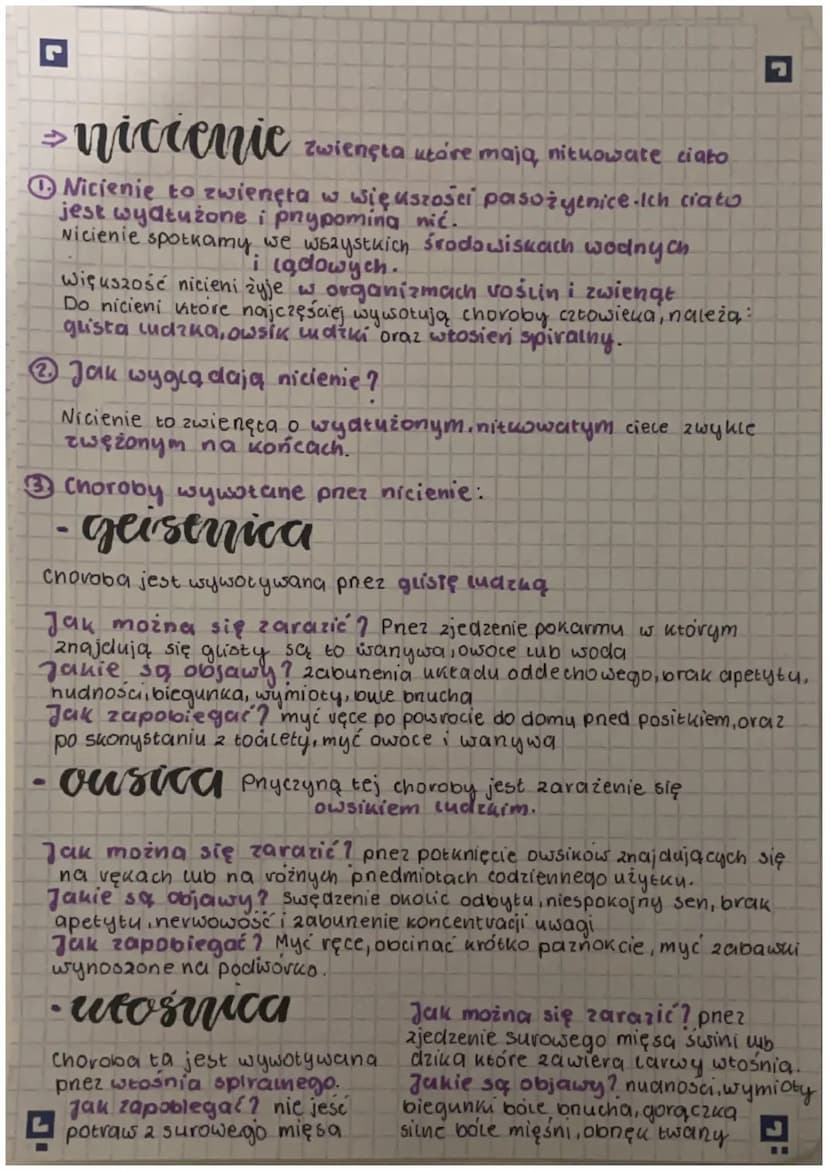 ⇒ nicienie zwierzęta które mają nitkowate ciało
1. Nicienie to zwierzęta w większości pasożytnice. Ich ciało
jest wydłużone i przypomina nić.
Nicienie spotkamy we wszystkich środowiskach wodnych
i lądowych.
Większość nicieni żyje w organizmach roślin i zwierząt
Do nicieni które najczęściej wywołują choroby człowieka, należą:
glista ludzka, owsik ludzki oraz włosień spiralny.
2. Jak wyglądają nicienie?
Nicienie to zwierzęta o wydłużonym, nitkowatym ciele zwykle
zwężonym na końcach.
3. Choroby wywołane przez nicienie:
- geisenica
Choroba jest wywoływana przez glistę ludzką
Jak można się zarazić? Przez zjedzenie pokarmu w którym
znajdują się glisty są to warzywa, owoce lub woda
Jakie są objawy? zaburzenia układu oddechowego, brak apetytu,
nudności, biegunka, wymioty, bule brzucha
Jak zapobiegać? myć ręce po powrocie do domu przed posiłkiem, oraz
po skorzystaniu z toalety, myć owoce i warzywa
- owsica Przyczyną tej choroby jest zarażenie się
owsikiem ludzkim.
Jak można się zarazić? przez połknięcie owsików znajdujących się
na rękach lub na różnych przedmiotach codziennego użytku.
Jakie są objawy? Swędzenie okolic odbytu, niespokojny sen, brak
apetytu, nerwowość i zaburzenie koncentracji uwagi
Jak zapobiegać? Myć ręce, obcinać krótko paznokcie, myć zabawki
wynoszone na podwórko.
- włośnica
Choroba ta jest wywoływana
przez włośnia spiralnego.
Jak zapobiegać? nie jeść
potraw z surowego mięsa
Jak można się zarazić? przez
zjedzenie surowego mięsa świni lub
dzika które zawiera larwy włośnia.
Jakie są objawy? nudności, wymioty
biegunki bóle brzucha, gorączka
silne bóle mięśni, obrzęk twarzy